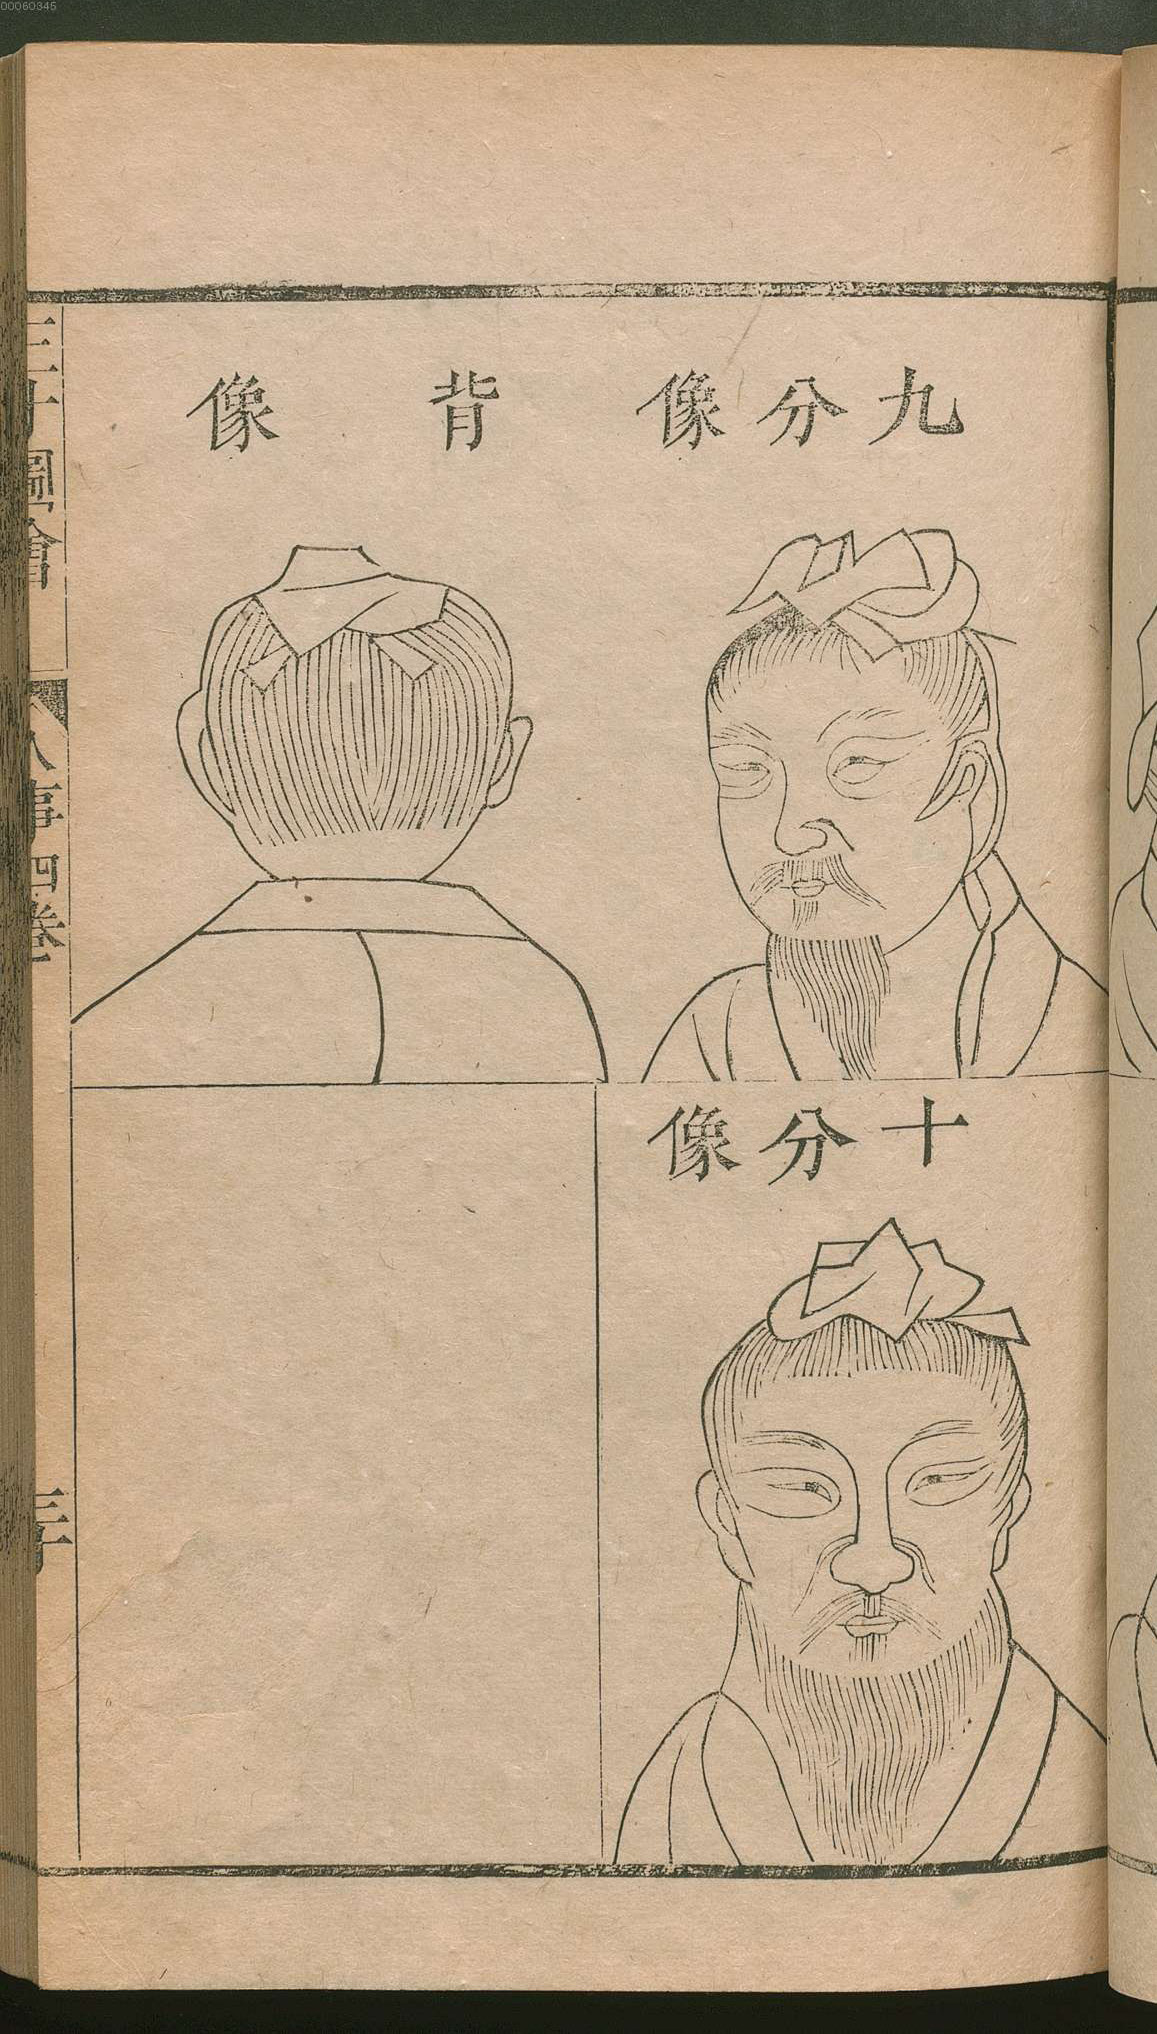 00060345
九分像
背像
十分像
三才圖會
人事四卷